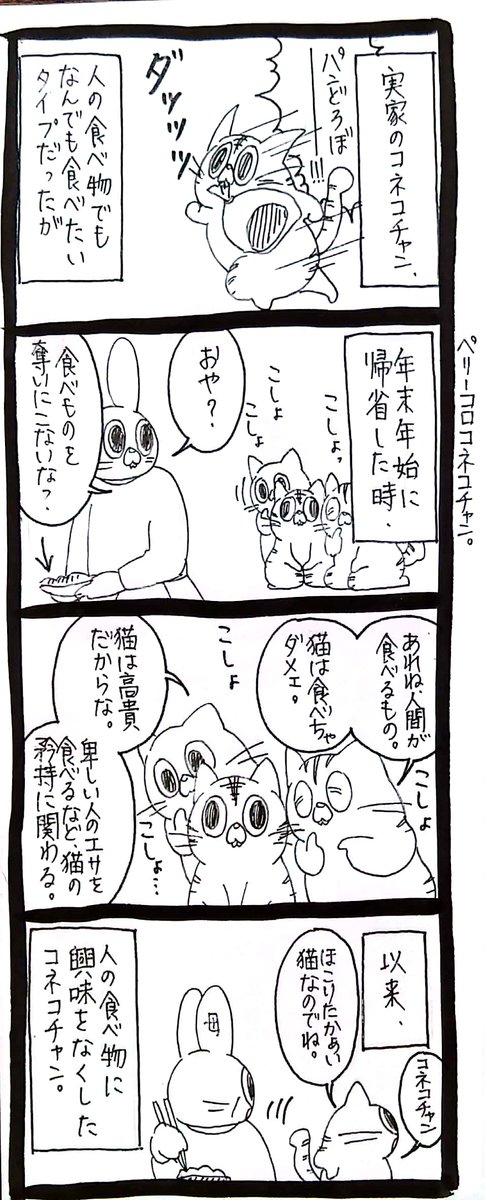 ペリーコロコネコチャン。
実家のコネコチャン、
パンどろぼ
!!!
ダッッッ
人の食べ物でも
なんでも食べたい
タイプだったが
年末年始に
帰省した時、
こしょっ
こしょ
こしょ
おや？
食べものを
奪いにこないな？
あれね、人間が
食べるもの。
猫は食べちゃ
ダメェ。
こしょ
こしょ
猫は高貴
だからな。
卑しい人のエサを
食べるなど、猫の
矜持に関わる。
こしょ…
以来、
コネコチャン
ほこりたかぁい
猫なのでね。
母
人の食べ物に
興味をなくした
コネコチャン。